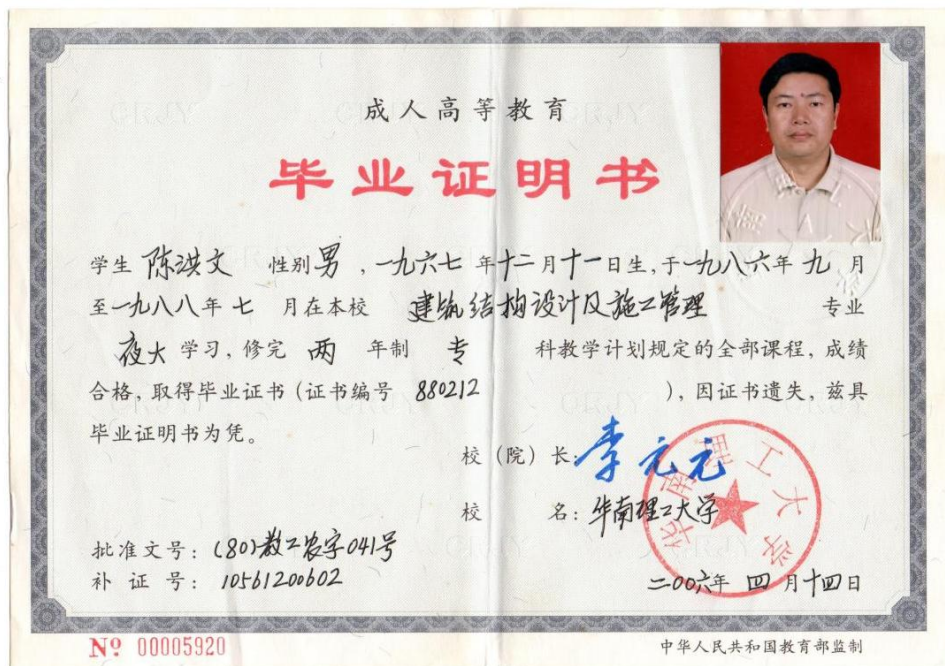 成人高等教育
毕业证明书
学生 陈洪文 性别 男 ,一九六七 年 十二 月 十一 日生,于 一九八六 年 九 月
至 一九八八 年 七 月在本校 建筑结构设计及施工管理 专业
夜大 学习,修完 两 年制 专 科教学计划规定的全部课程,成绩
合格,取得毕业证书(证书编号 880212 ),因证书遗失,兹具
毕业证明书为凭。
校(院)长:李元元
校 名:华南理工大学
华南理工大学
批准文号:(80)教工农字041号
补 证 号:10561200602
二00六年 四 月十四日
№ 00005920
中华人民共和国教育部监制